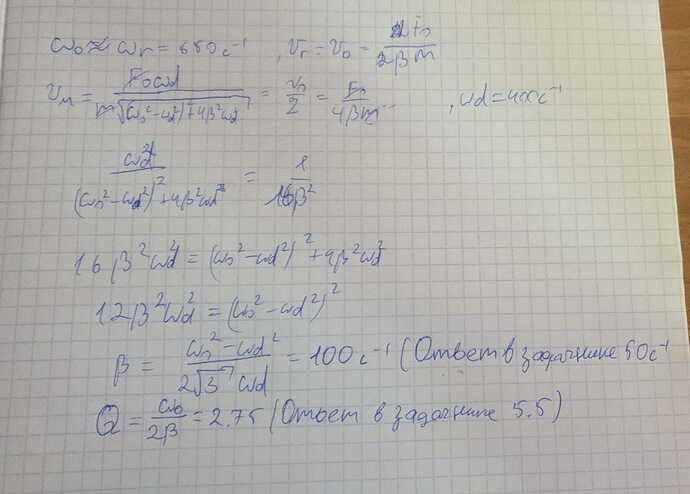 ω₀ ≈ ωr = 550 c⁻¹ , Vr = V₀ = F₀/(2βm)
Vm = F₀ωd/(m√((ω₀²−ωd²)²+4β²ωd²)) = V₀/2 = F₀/(4βm) , ωd = 400 c⁻¹
ωd²/((ω₀²−ωd²)²+4β²ωd²) = 1/(16β²)
16β²ωd² = (ω₀²−ωd²)²+4β²ωd²
12β²ωd² = (ω₀²−ωd²)²
β = (ω₀²−ωd²)/(2√3 ωd) = 100 c⁻¹ (Ответ в задачнике 50 c⁻¹
Q = ω₀/2β = 2.75 (Ответ в задачнике 5.5)